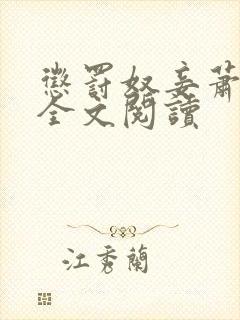 懲罰奴妾蕭
全文閱讀
江秀蘭